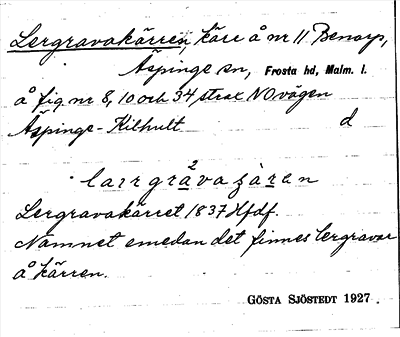 Lergravakärren, kärr å nr 11 Benarp,
Äspinge sn, Frosta hd, Malm. l.
å fig nr 8, 10 och 34 strax NO vägen
Äspinge - Kilhult d
Lergravakärret 1837 Hfdf.
Namnet emedan det finnes lergravar
å kärren.
GÖSTA SJÖSTEDT 1927.